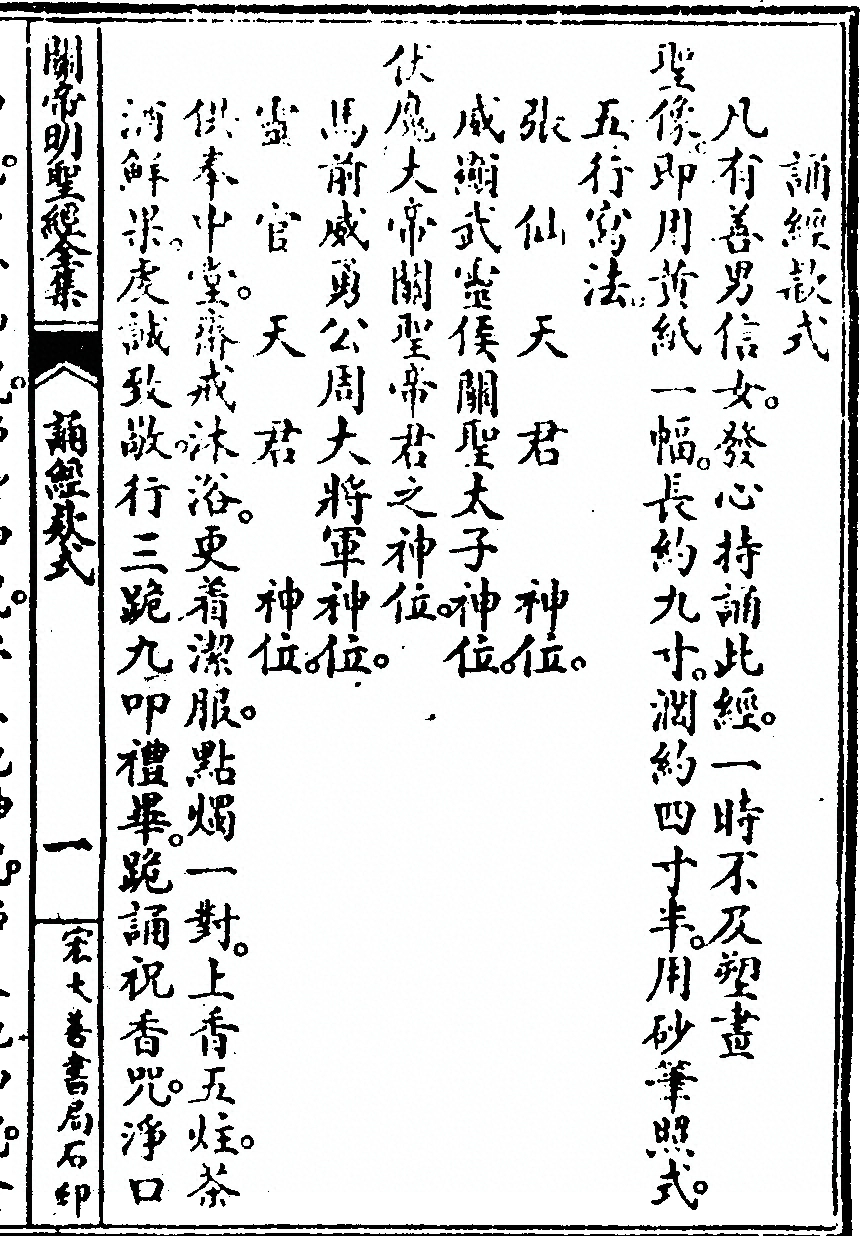 誦經欵式
凡有善男信女。發心持誦此經。一時不及塑畫
聖像。即用黃紙一幅。長約九寸。濶約四寸半。用砂筆照式。
五行寫法。
張仙天君神位。
威顯武靈侯關聖太子神位。
伏魔大帝關聖帝君之神位。
馬前威勇公周大將軍神位。
靈官天君神位。
供奉中堂。齋戒沐浴。更着潔服。點燭一對。上香五炷。茶
酒鮮果。虔誠致敬。行三跪九叩禮畢。跪誦祝香咒。淨口
關帝明聖經全集
誦經欵式
一
宏大善書局石印